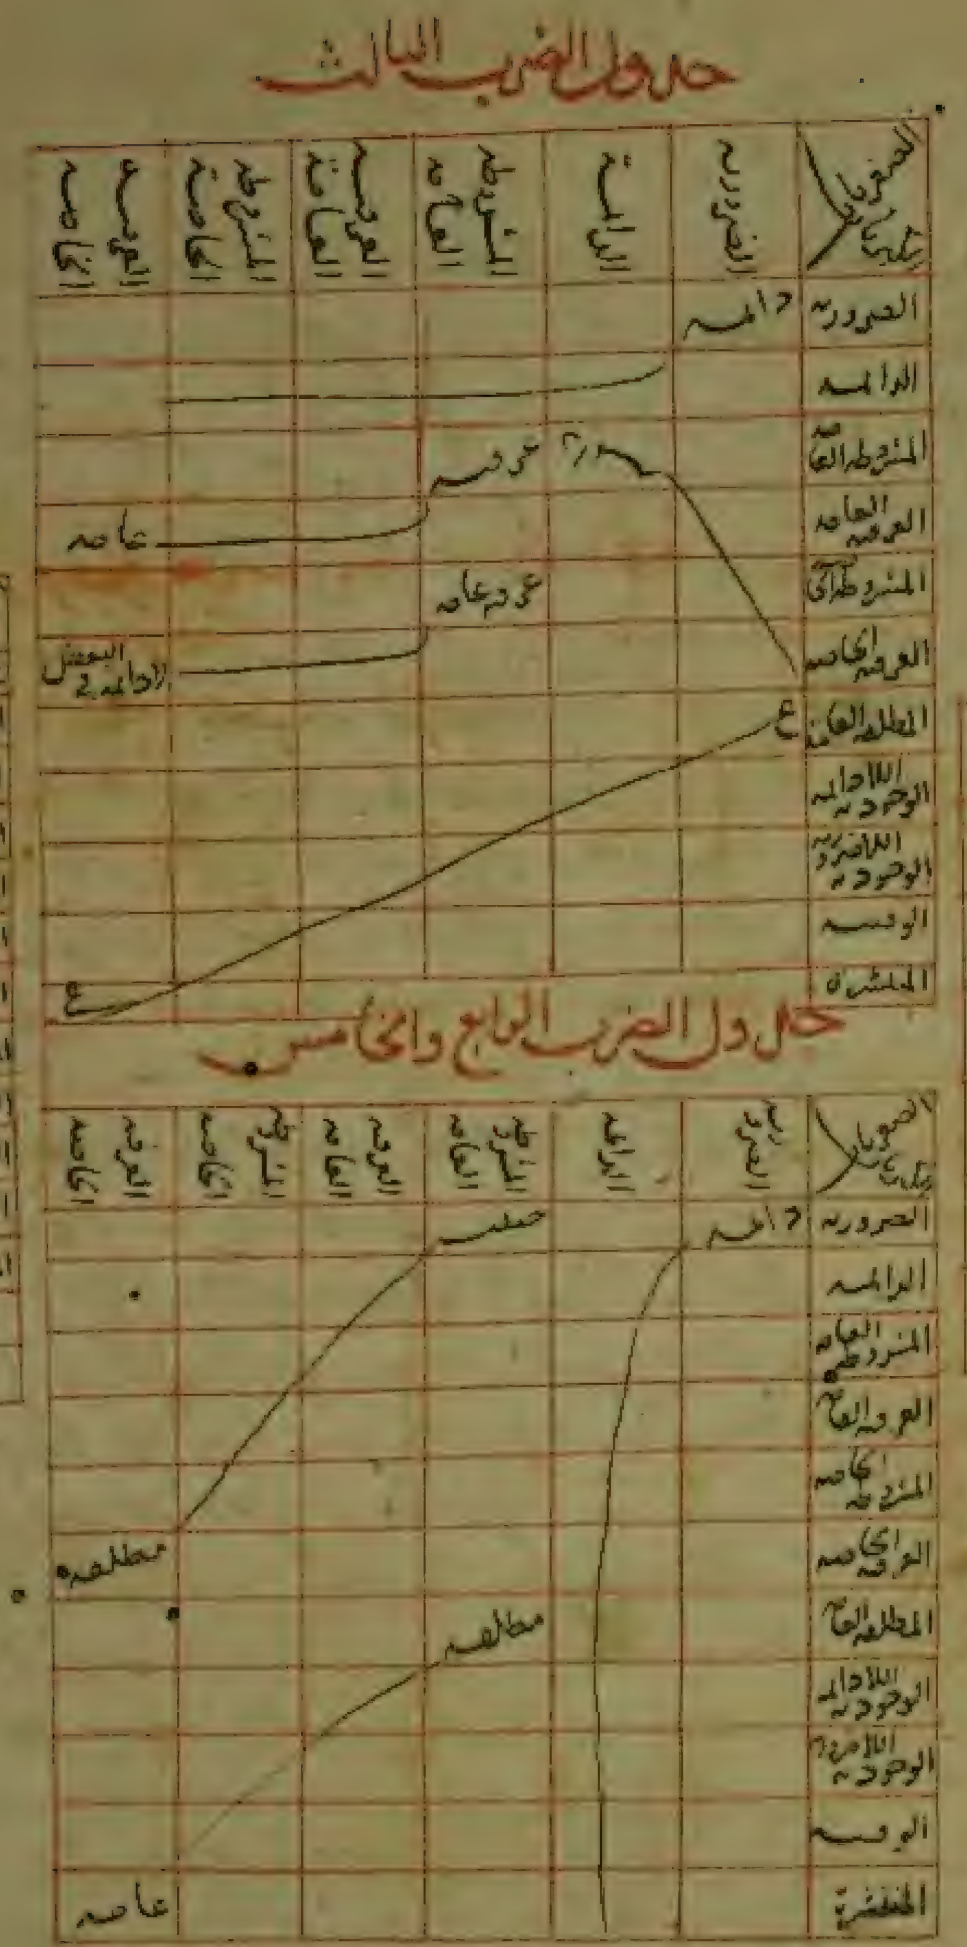 جدول الضرب الثالث
الصغريات الضرورية الدائمة المشروطة العامة العرفية العامة المشروطة الخاصة العرفية الخاصة
الكبريات
الضرورية دائمة
الدائمة
المشروطة العامة عرفية
العرفية العامة عامة
المشروطة الخاصة عرفية عامة
العرفية الخاصة لادائمة في البعض
المطلقة العامة ع
الوجودية اللادائمة
الوجودية اللاضرورية
الوقتية
المنتشرة ع
جدول الضرب الرابع والخامس
الصغريات الضرورية الدائمة المشروطة العامة العرفية العامة المشروطة الخاصة العرفية الخاصة
الكبريات
الضرورية دائمة حينية
الدائمة
المشروطة العامة
العرفية العامة
المشروطة الخاصة
العرفية الخاصة مطلقة
المطلقة العامة مطلقة
الوجودية اللادائمة
الوجودية اللاضرورية
الوقتية
المنتشرة عامة